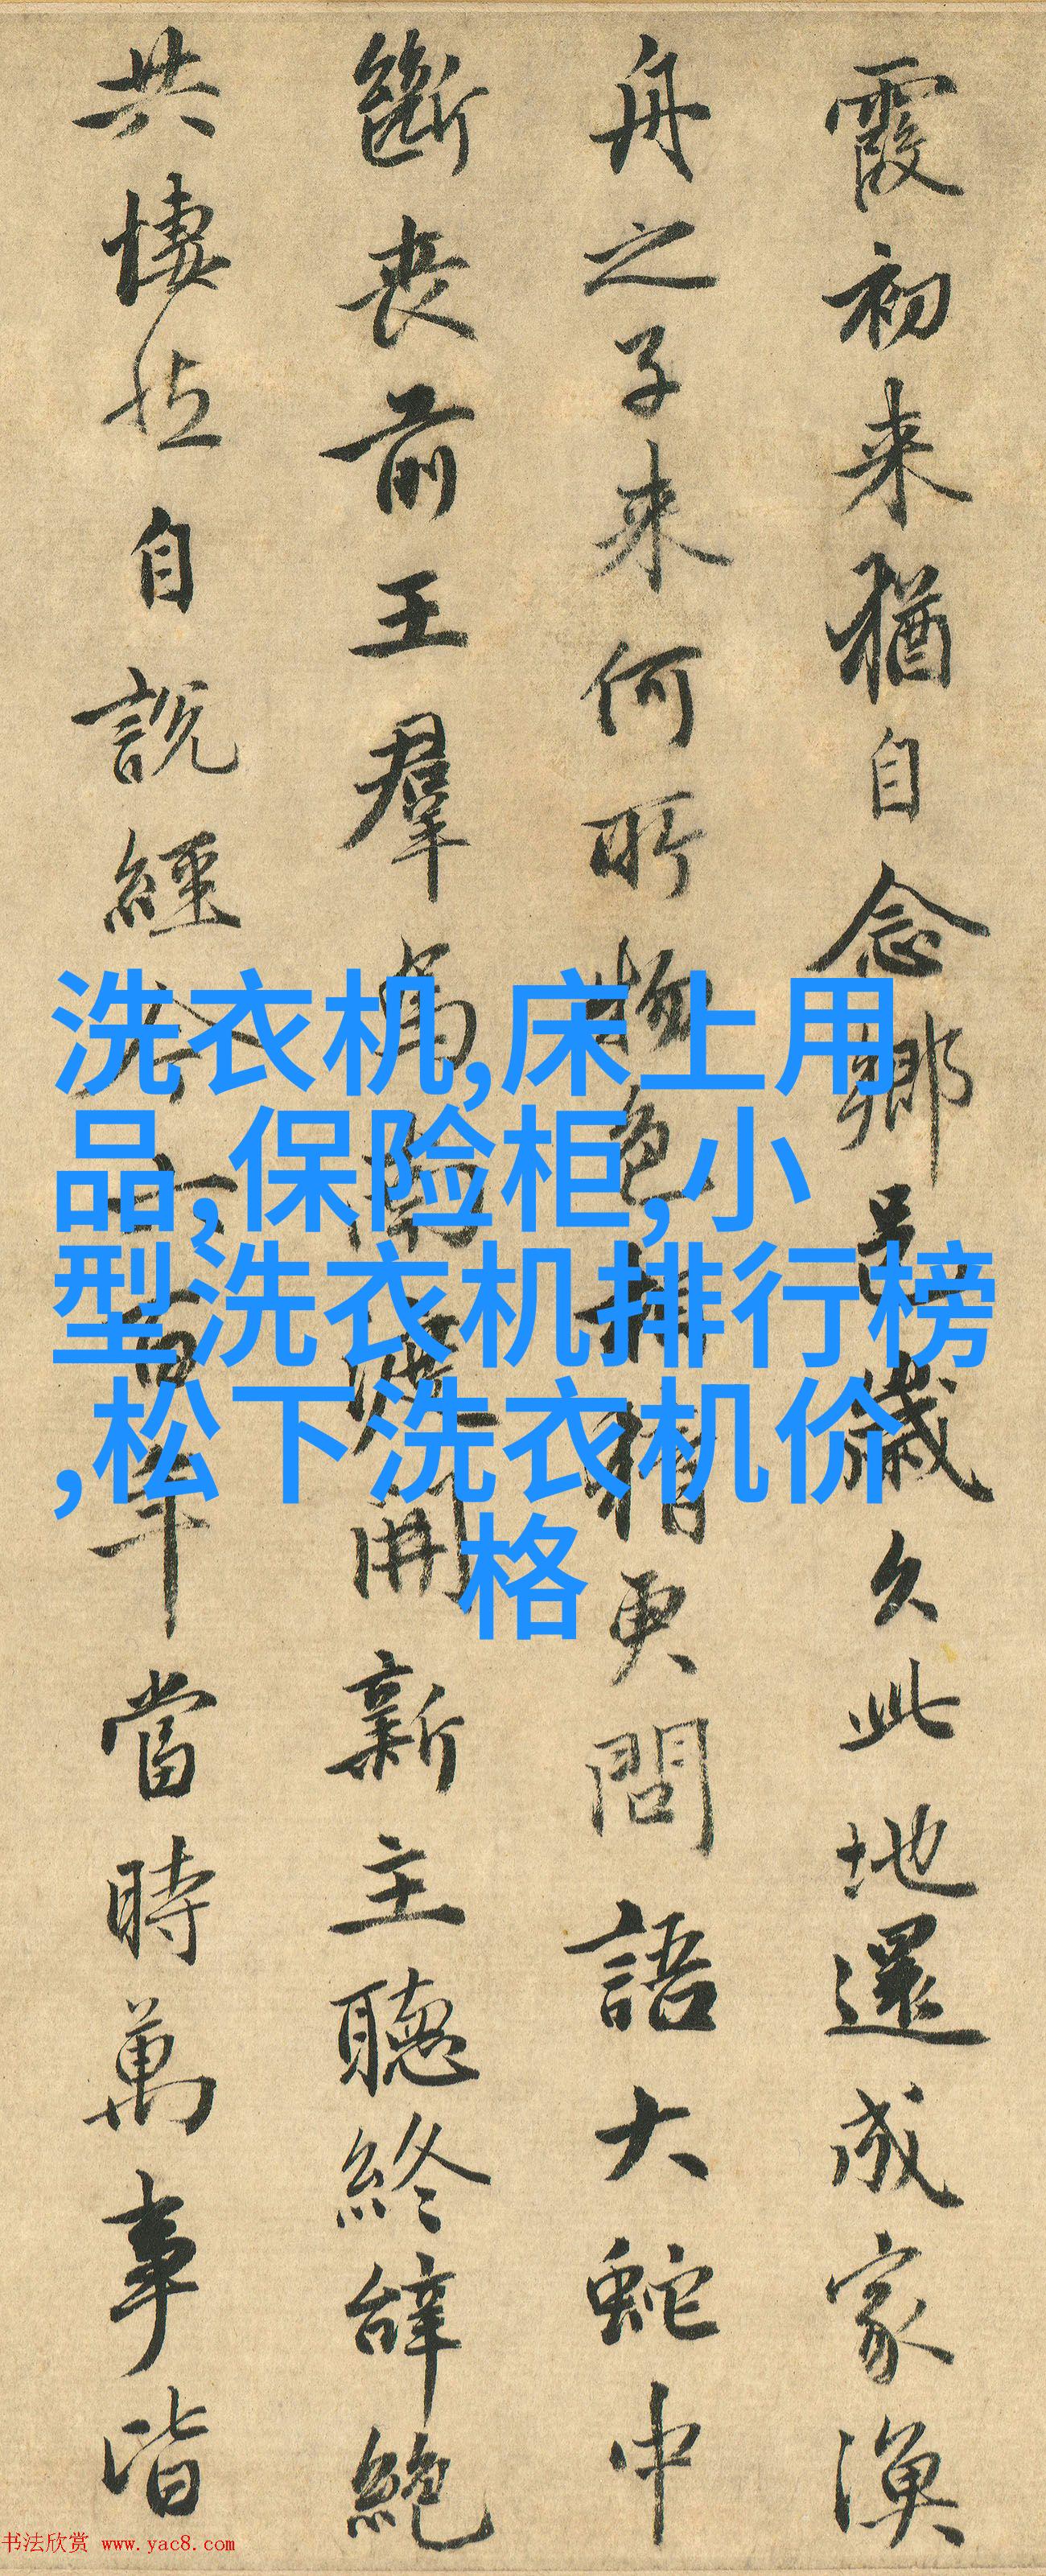 霞初来猶自念鄉邑歲久此地還成家漁
舟之子来何所物色相猜更問語大蛇中
斷喪前王羣馬南渡開新主聽終辭絕
共悽然自說經今六百年當時萬事皆
洗衣机,床上用
品,保险柜,小
型洗衣机排行榜
,松下洗衣机价
格
书法欣赏 www.yac8.com